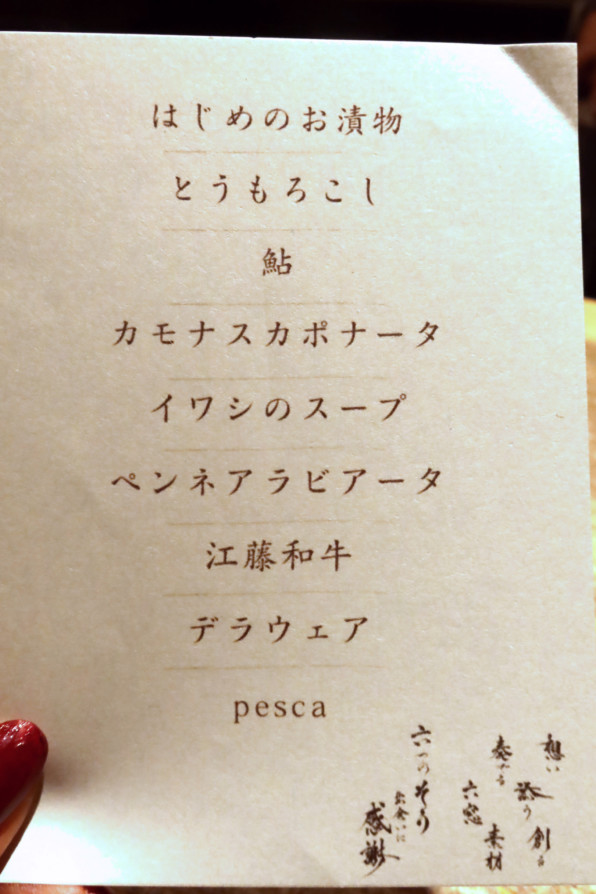 はじめのお漬物
とうもろこし
鮎
カモナスカポナータ
イワシのスープ
ペンネアラビアータ
江藤和牛
デラウェア
pesca
想い
添う
創る
奏でる
素材
六窓
六つのそう
出会いに
感謝